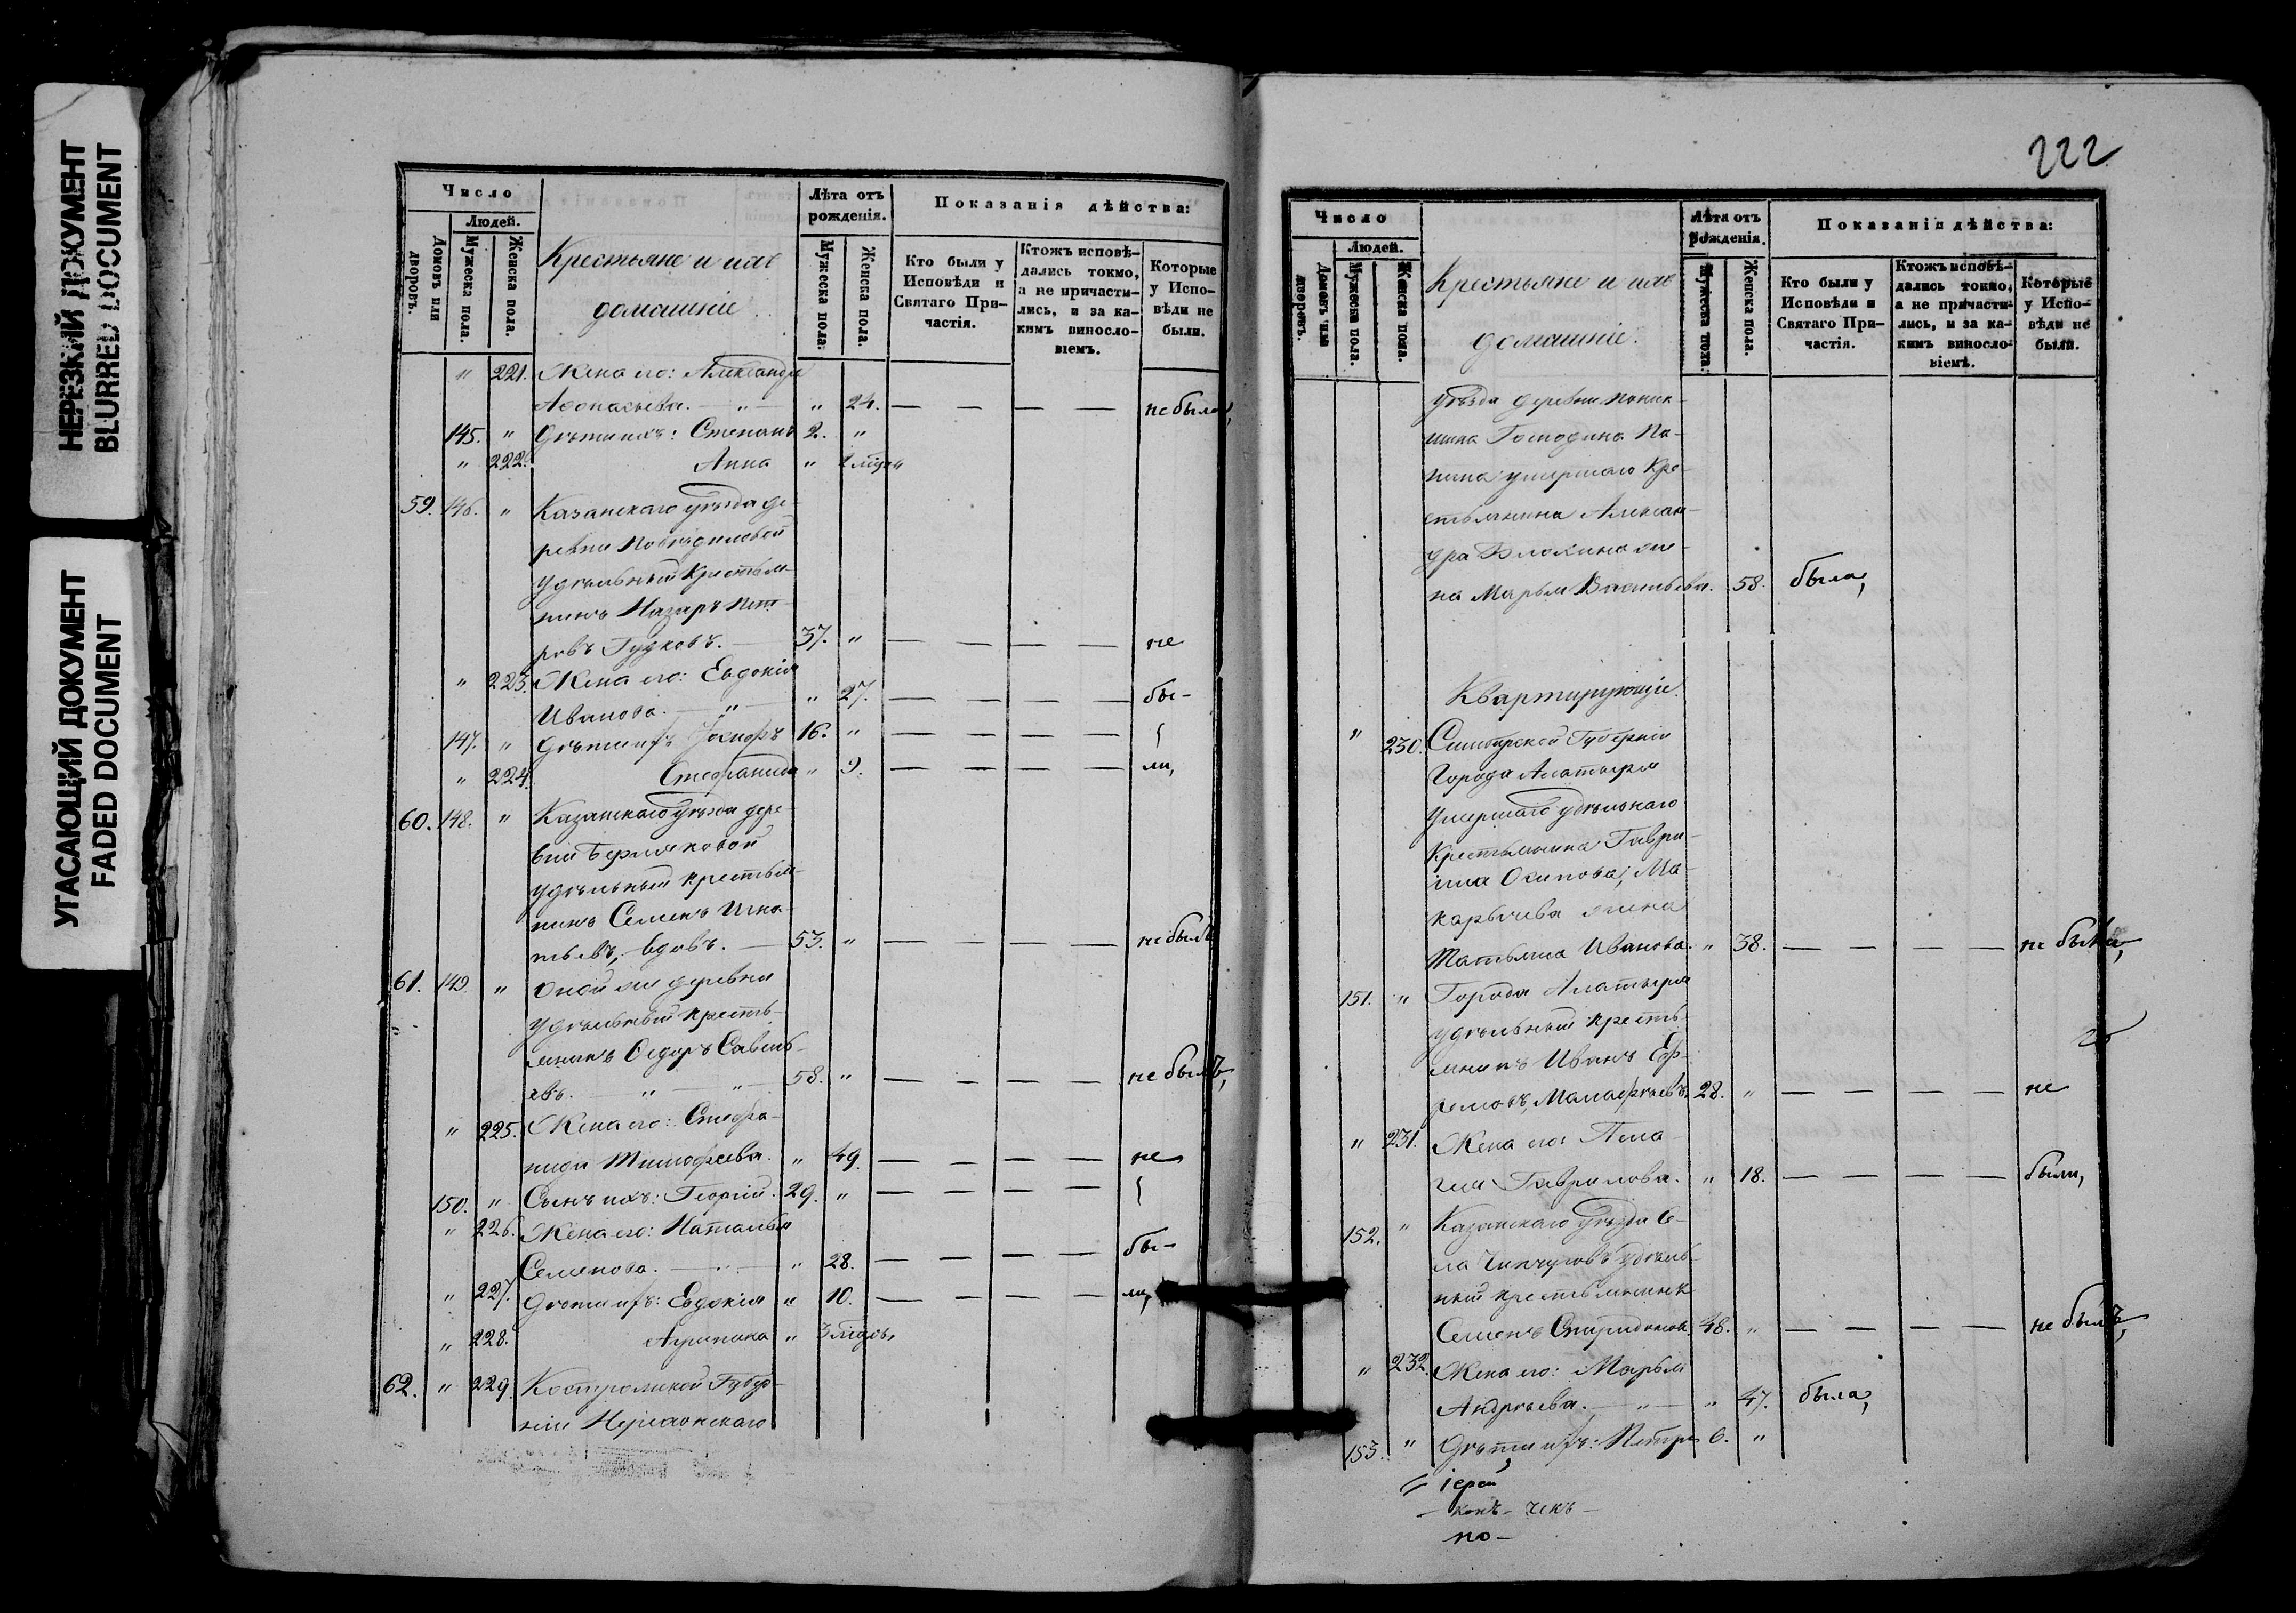 НЕРЕЗКИЙ ДОКУМЕНТ
BLURRED DOCUMENT
УГАСАЮЩИЙ ДОКУМЕНТ
FADED DOCUMENT
Число
Людей.
Домовъ или дворовъ.
Мужеска пола.
Женска пола.
Крестьяне и ихъ
домашніе
Лѣта отъ рожденія.
Мужеска пола.
Женска пола.
Показанія дѣйства:
Кто были у Исповѣди и Святаго Причастія.
Ктожъ исповѣдались токмо, а не причастились, и за какимъ винословіемъ.
Которые у Исповѣди не были.
" 221. Жена его: Александра
Аѳонасьева. — " — " 24. — — — — не была,
145. " Дѣти ихъ: Степанъ 2. "
" 222. Анна "
59. 146. " Казанскаго уѣзда де-
ревни
удѣльный крестья-
нинъ Назаръ Пет-
ровъ Гудковъ. — 37. " — — — — не
" 223. Жена его: Евдокія
Иванова. — " — " 27. — — — — бы-
147. " Дѣти ихъ Іосифъ 16. " — — — —
" 224. Стефанида " 9. — — — — ли,
60. 148. " Казанскаго уѣзда дере-
вни Берляковой
удѣльный крестья-
нинъ Семенъ Игна-
тьевъ, вдовъ. — 53. " — — — — не былъ
61. 149. " Оной же деревни
удѣльный кресть-
янинъ Ѳедоръ Савель-
евъ. — " — " — 58. " — — — — не былъ,
" 225. Жена его: Стефа-
нида Тимофеева. " 49. — — — — не
150. " Сынъ ихъ: Георгій. 29. " — — — —
" 226. Жена его: Наталья
Семенова. — " — " 28. — — — — бы-
" 227. Дѣти ихъ: Евдокія " 10. — — — — ли,
" 228. Агрипина " 3 мѣсяц.
62. " 229. Костромской Губер-
ніи
222
Число
Людей.
Домовъ или дворовъ.
Мужеска пола.
Женска пола.
Крестьяне и ихъ
домашніе.
Лѣта отъ рожденія.
Мужеска пола.
Женска пола.
Показанія дѣйства:
Кто были у Исповѣди и Святаго Причастія.
Ктожъ исповѣдались токмо, а не причастились, и за какимъ винословіемъ.
Которые у Исповѣди не были.
уѣзда деревни
Господина Па-
умершаго кре-
стьянина Алексан-
дра же-
на Марья Васильева. 58. была,
Квартирующіе.
" 230. Симбирской Губерніи
Города Алатыря
умершаго удѣльнаго
крестьянина Гаври-
ила Осипова, Ма-
карычева жена
Татьяна Иванова. " 38. — — — — не была,
151. " Города Алатыря
удѣльный кресть-
янинъ Иванъ Еф-
ремовъ, 28. " — — — — не
" 231. Жена его: Пела-
гея Гаврилова. " 18. — — — — были,
152. " Казанскаго уѣзда Се-
ла Чипчуговъ удѣль-
ный крестьянинъ
Семенъ Спиридоновъ 48. " — — — — не былъ,
" 232. Жена его: Марья
Андреева. — " — " 47. была,
153. " Дѣти ихъ: Петръ 6. "
іерей
по-